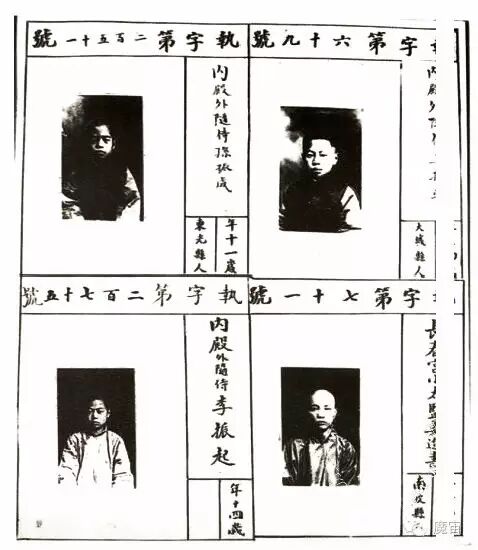 執字第六十九號
內殿外隨侍
大城縣人
執字第二百五十一號
內殿外隨侍孫振成
年十一歲
東光縣人
執字第七十一號
長春宮小太監
南皮縣
執字第二百七十五號
內殿外隨侍李振起
年十四歲
魔宙